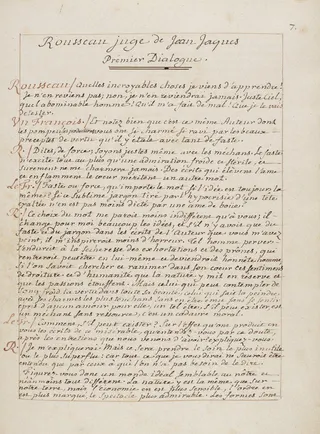 7.
Rousseau juge de Jean Jaques
Premier Dialogue.
Rousseau. Quelles incroyables choses je viens d'apprendre!
Je n'en reviens pas: non, je n'en reviendrai jamais. Juste Ciel,
quel abominable homme! qu'il m'a fait de mal! Que je le vais
détester.
Un François. Et notez bien que c'est ce même Auteur dont
les pompeuses productions vous ont si charmé, si ravi par les beaux
preceptes de vertu qu'il y étale avec tant de faste.
R. Dites, de force. Soyons justes même avec les méchans. Le faste
n'excite tout au plus qu'une admiration froide et stérile, et
surement ne me charmera jamais. Des écrits qui élevent l'ame
et enflamment le coeur méritent un autre mot.
Le Fr. Faste ou force, qu'importe le mot si l'idée est toujours la
même? Si ce sublime jargon tiré par l'hypocrisie d'une tête
exaltée n'en est pas moins dicté par une ame de boue?
R. Ce choix du mot me paroit moins indifférent qu'à vous; il
change pour moi beaucoup les idées, et s'il n'y avoit que du
faste et du jargon dans les écrits de l'Auteur que vous m'avez
peint, il m'inspireroit moins d'horreur. Tel homme pervers
s'endurcit à la secheresse des sermons et des prônes, qui
rentreroit peut-être en lui-même et deviendroit honnête homme
si l'on savoit chercher et ranimer dans son coeur ces sentimens
de droiture et d'humanité que la nature y mit en réserve et
que les passions étouffent. Mais celui qui peut contempler de
sang froid la vertu dans toute sa beauté, qui sait la peindre
avec les charmes les plus touchans sans en être ému, sans se sentir
épris d'aucun amour pour elle; un tel être, s'il peut exister, est
un méchant sans ressource, c'est un cadavre moral.
Le Fr. Comment, s'il peut exister? Sur l'effet qu'ont produit en
vous les écrits de ce misérable, qu'entendez-vous par ce doute,
après les entretiens que nous venons d'avoir? Expliquez-vous.
R. Je m'expliquerai: Mais ce sera prendre le soin le plus inutile
ou le plus superflu: car tout ce que je vous dirai ne sauroit être
entendu que par ceux à qui l'on n'a pas besoin de le dire.
Figurez-vous donc un monde idéal semblable au nôtre et
néanmoins tout différent. La nature y est la même que sur
notre terre, mais l'économie en est plus sensible, l'ordre en
est plus marqué, le spectacle plus admirable. Les formes sont